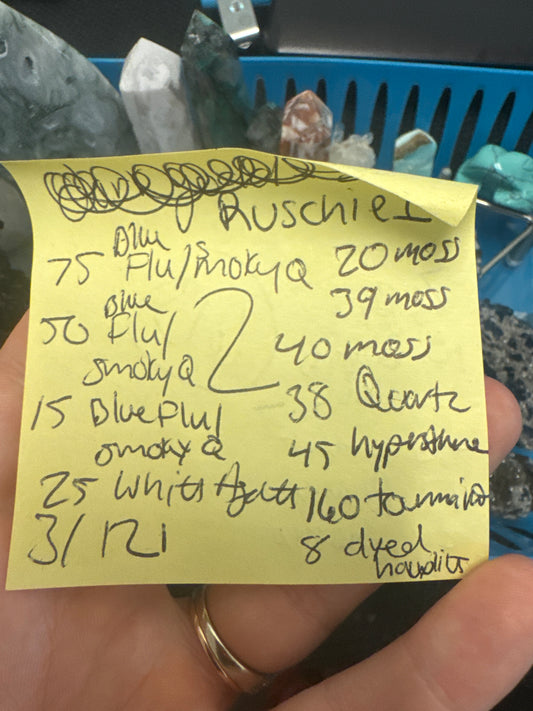 Ruschie I
Blue
75 Flu/smoky Q
Blue
50 Flu/
smoky Q
15 Blue Flu/
smoky Q
25 White Agate
3/121
2
20 moss
39 moss
40 moss
38 Quartz
45 hypersthene
160
8 dyed